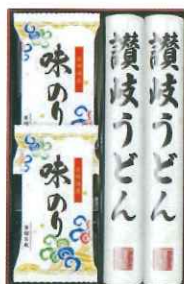 味のり
味のり
讃岐うどん
讃岐うどん